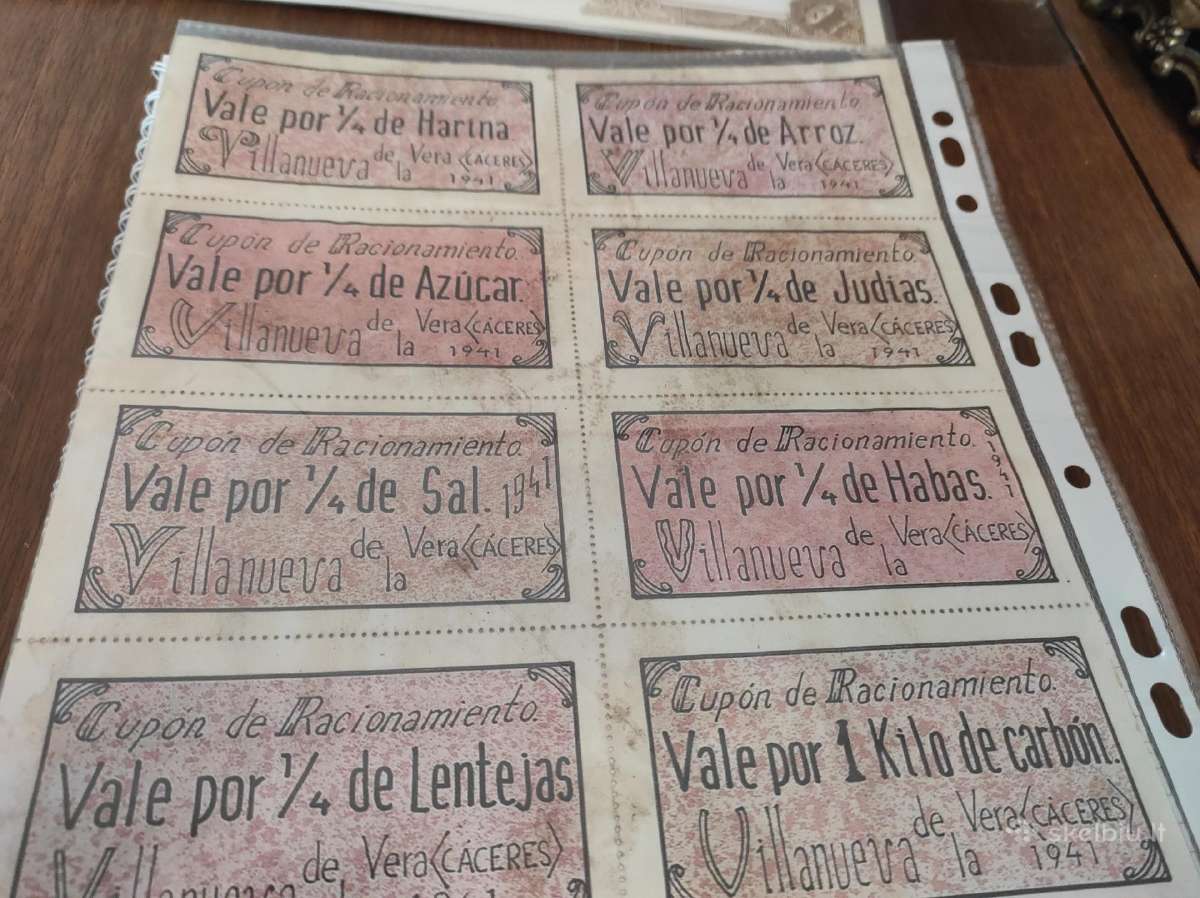 Cupón de Racionamiento.
Vale por 1/4 de Harina
Villanueva de la Vera <CÁCERES>
1941
Cupón de Racionamiento.
Vale por 1/4 de Arroz.
Villanueva de la Vera <CÁCERES>
1941
Cupón de Racionamiento.
Vale por 1/4 de Azúcar.
Villanueva de la Vera <CÁCERES>
1941
Cupón de Racionamiento.
Vale por 1/4 de Judías.
Villanueva de la Vera <CÁCERES>
1941
Cupón de Racionamiento.
Vale por 1/4 de Sal. 1941
Villanueva de la Vera <CÁCERES>
Cupón de Racionamiento.
Vale por 1/4 de Habas. 1941
Villanueva de la Vera <CÁCERES>
Cupón de Racionamiento.
Vale por 1/4 de Lentejas
Villanueva de Vera <CÁCERES>
Cupón de Racionamiento.
Vale por 1 Kilo de carbón.
Villanueva de la Vera <CÁCERES>
1941
skelbiu.lt